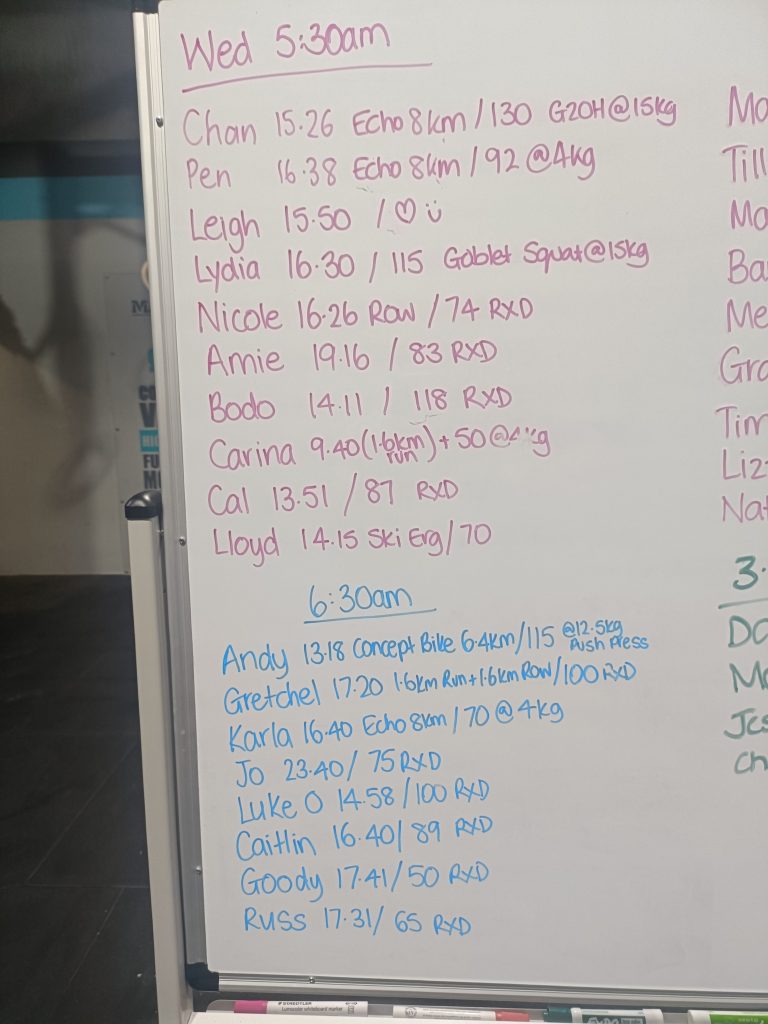 Wed 5:30am
Chan 15.26 Echo 8km/130 G2OH@15kg
Pen 16.38 Echo 8km/92 @4kg
Leigh 15.50 /♡ü
Lydia 16.30 / 115 Goblet Squat@15kg
Nicole 16.26 Row /74 RXD
Amie 19.16 / 83 RXD
Bodo 14.11 / 118 RXD
Carina 9.40 (1.6km run) + 50 @4kg
Cal 13.51 /87 RXD
Lloyd 14.15 Ski Erg/70
6:30am
Andy 13.18 Concept Bike 6.4km/115 @12.5kg Push Press
Gretchel 17.20 1.6km Run+1.6km Row/100 RXD
Karla 16.40 Echo 8km/70 @ 4kg
Jo 23.40/ 75 RXD
Luke O 14.58/100 RXD
Caitlin 16.40/ 89 RXD
Goody 17.41/50 RXD
Russ 17.31/ 65 RXD
Mo
Till
Mo
Ba
Me
Gra
Tim
Liz
Nat
3.
Do
Mo
Jes
Ch
STAEDTLER
Lumocolor whiteboard marker
EXPO